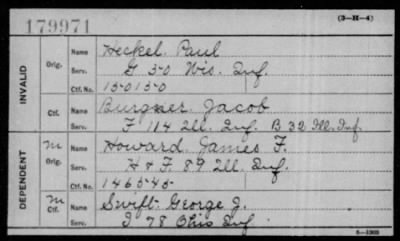 179971 (3-H-4)
INVALID
Orig. Name Heckel Paul
Serv. G 50 Wis. Inf.
Ctf. No. 150150
Ctf. Name Burgner Jacob
Serv. F 114 Ill. Inf. B 32 Ill. Inf.
DEPENDENT
M Orig. Name Howard James F.
Serv. H & F. 89 Ill. Inf.
Ctf. No. 146545
M Ctf. Name Swift George J.
Serv. I 78 Ohio Inf.